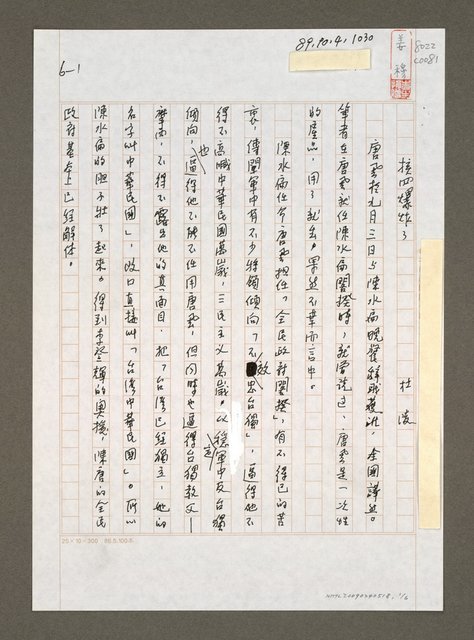 89.10.4.1030
8022
C0081
姜穆
6-1
核四爆炸了
杜波
唐飛於九月三日與陳水扁晚餐辭職獲准,全國譁然。
筆者在唐飛就任陳水扁閣揆時,就曾說過,唐飛是一次性
的產品,用了就丟,果然不幸而言中。
陳水扁任命唐飛擔任「全民政府閣揆」,有不得已的苦
衷,傳聞軍中有不少將領傾向「不放思台獨」,逼得他不
得不高喊中華民國萬歲,三民主義萬歲。以穩定軍中反台獨
傾向,也逼得他不能不任用唐飛,但同時也逼得台獨教父—
摩西,不得不露出他的真面目,把「台灣已經獨立,她的
名字叫中華民國」,改口直接叫「台灣中華民國」。所以
陳水扁的膽子壯了起來。得到李登輝的奧援,陳唐的全民
政府基本上已經解体。
25×10=300 86.5.100本
NMTL20090240518, 1/6